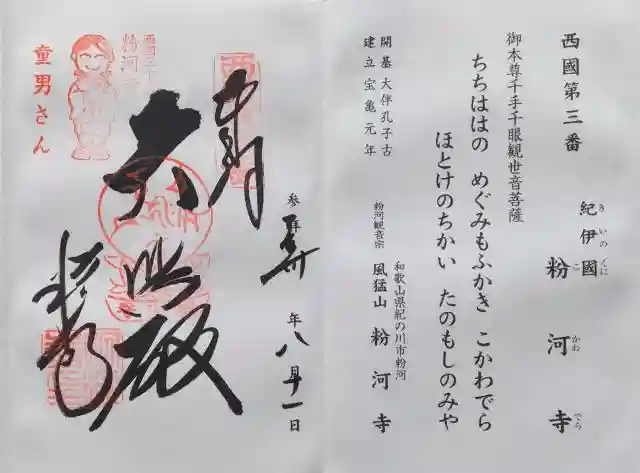 西國第三番
紀伊國 粉河寺
きいのくに こかわでら
御本尊千手千眼観世音菩薩
ちちははの めぐみもふかき こかわでら
ほとけのちかい たのもしのみや
和歌山県紀の川市粉河
粉河観音宗 風猛山 粉河寺
開基 大伴孔子古
建立 宝亀元年
奉拝
参拝
年八月十一日
大悲殿
粉河寺
西国三
粉河寺
童男さん